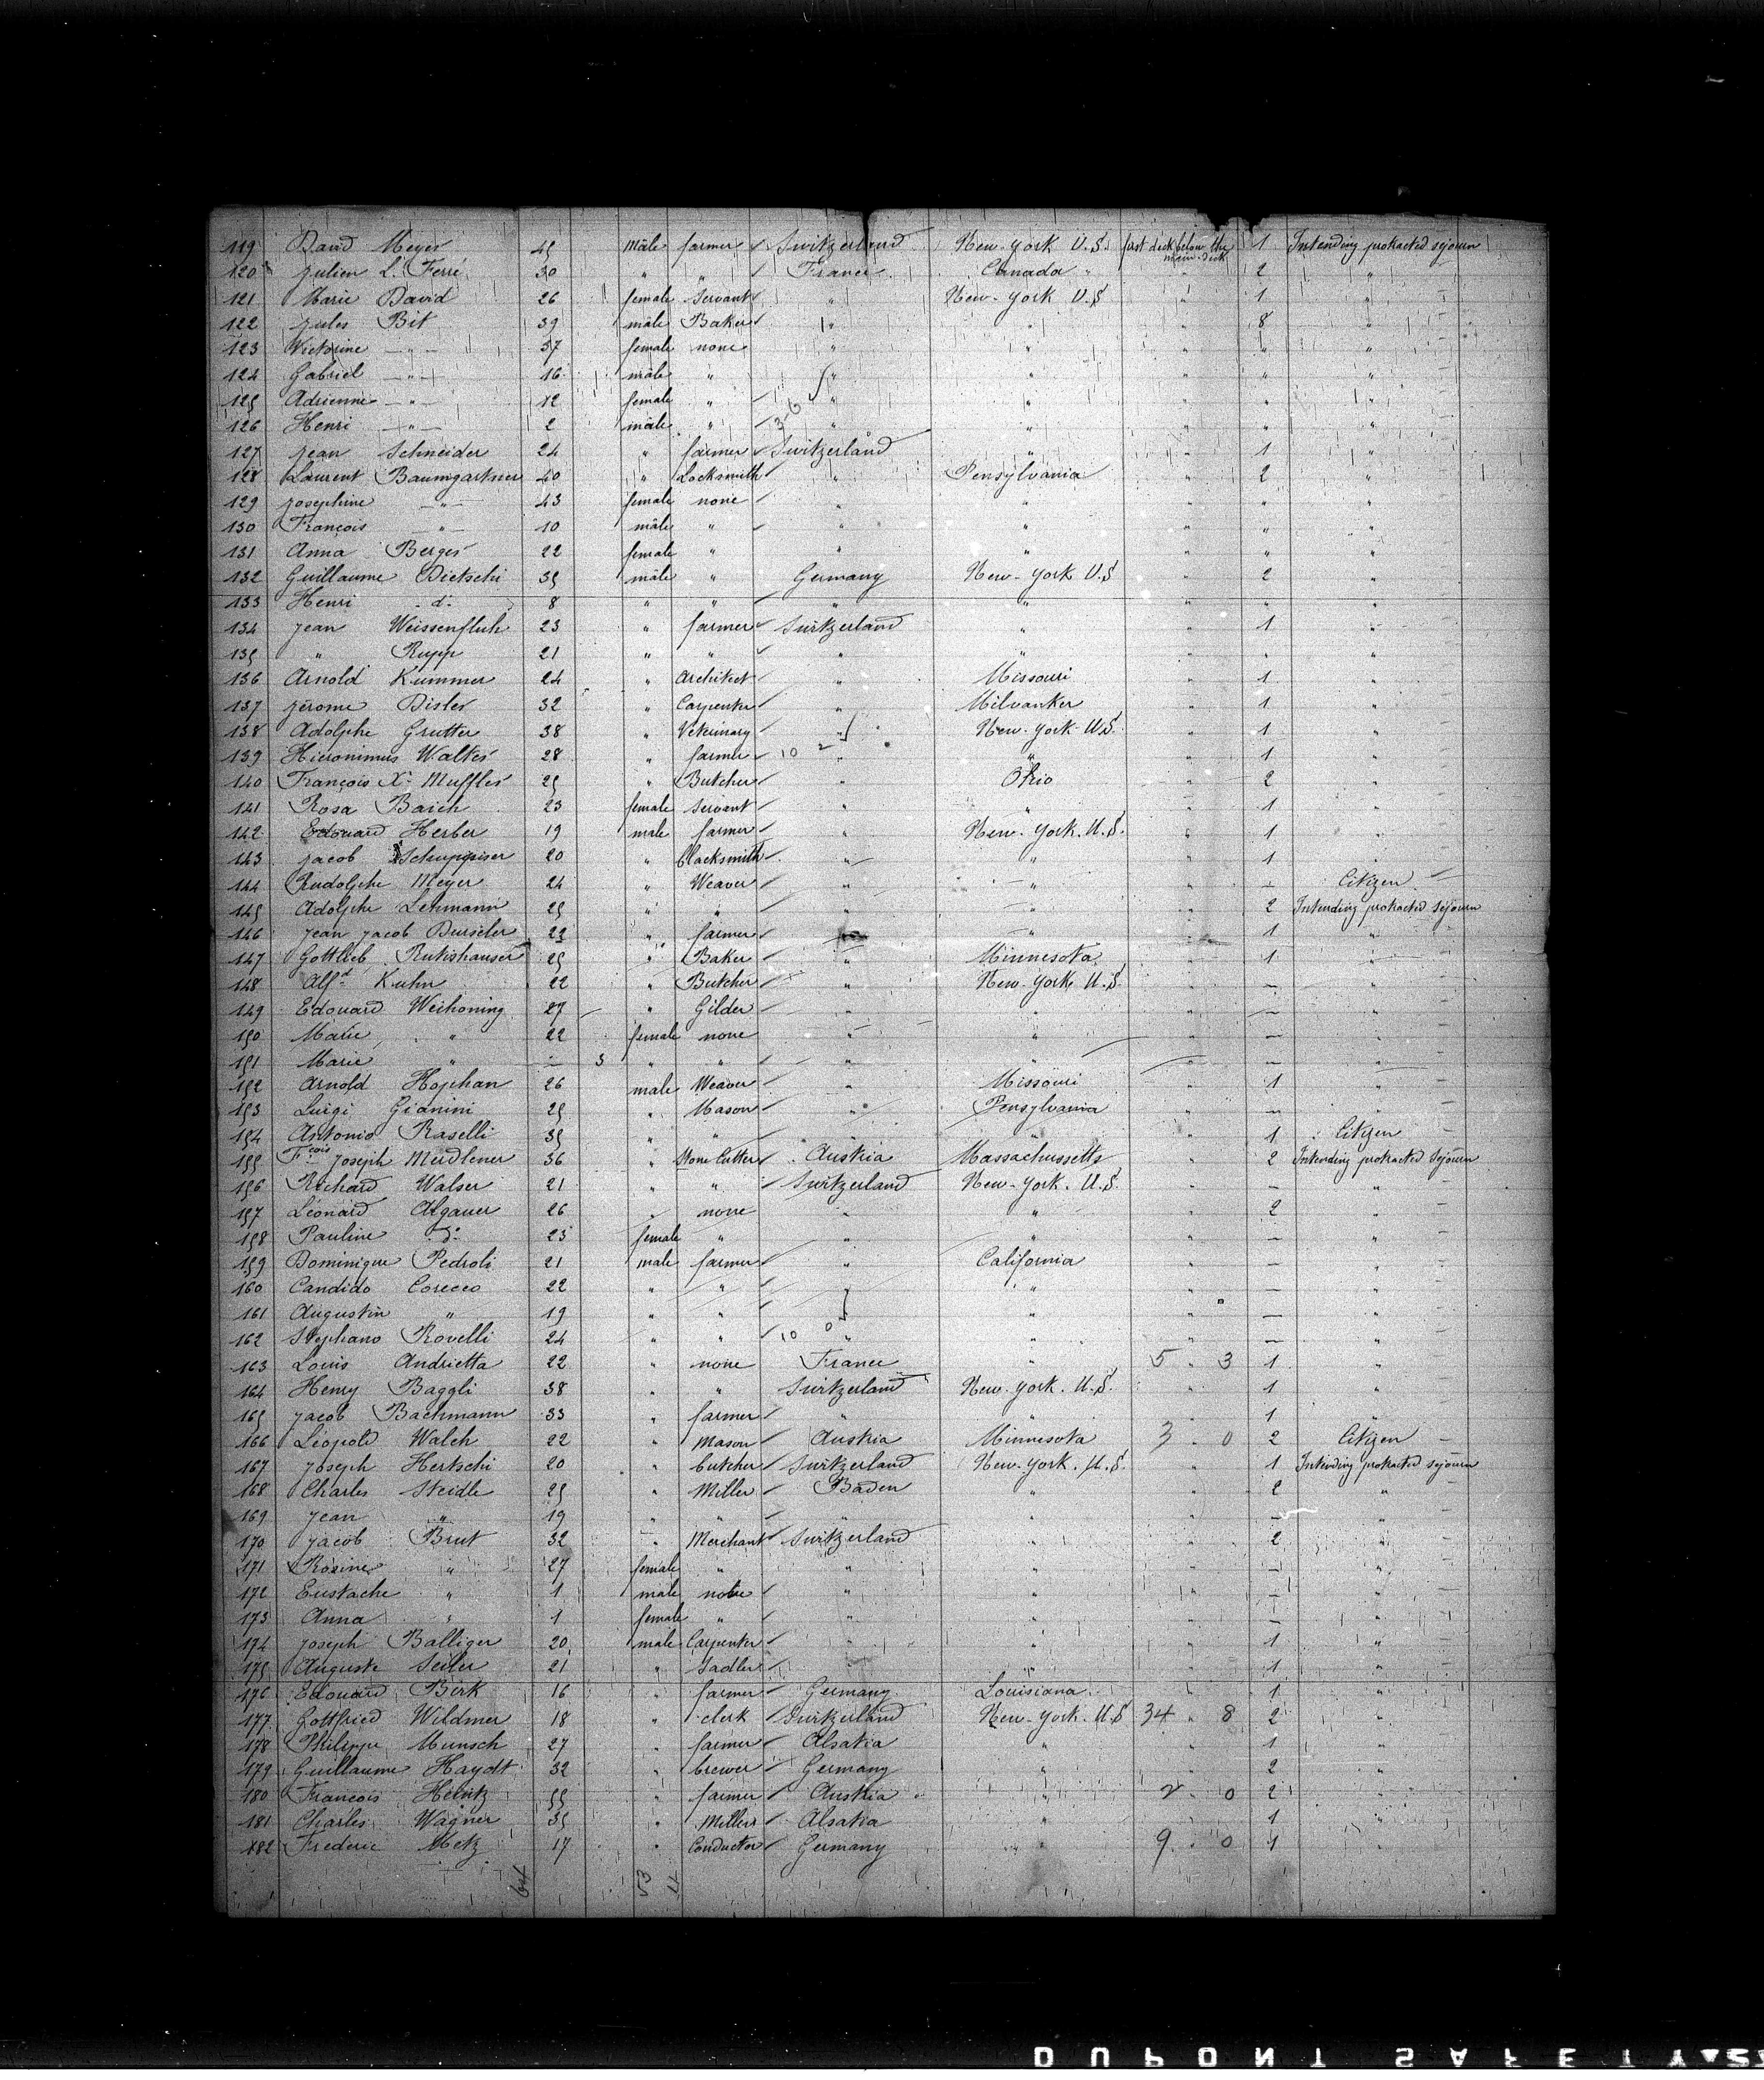 119 David Meyer 45 male farmer Switzerland New-York U.S. first deck below the main-deck 1 Intending protracted sejourn
120 Julien L. Ferré 30 " " France Canada " " 2 "
121 Marie David 26 female servant " New-York U.S " 1 "
122 Jules Bit 39 male Baker " " " 8 "
123 Victorine —"— 37 female none " " " " "
124 Gabriel —"— 16 male " " " " " "
125 Adrienne —"— 12 female " " " " " "
126 Henri —"— 2 male " 3-6 " " " " "
127 Jean Schneider 24 " farmer Switzerland " " 1 "
128 Laurent Baumgartner 40 " Locksmith " Pensylvania " 2 "
129 Josephine —"— 43 female none " " " " "
130 François —"— 10 male " " " " " "
131 Anna Berger 22 female " " " " " "
132 Guillaume Dietschi 35 male " Germany New-York U.S " 2 "
133 Henri d° 8 " " " " " " "
134 Jean Weissenfluh 23 " farmer Switzerland " " 1 "
135 " Rupp 21 " " " " " " "
136 Arnold Kummer 24 " Architect " Missouri " 1 "
137 Jérome Disler 32 " Carpenter " Milvanker " 1 "
138 Adolphe Grutter 38 " Veterinary " New-York U.S. " 1 "
139 Hieronimus Walter 28 " farmer 10 2 " " 1 "
140 François X. Muffler 25 " Butcher " Ohio " 2 "
141 Rosa Baich 23 female servant " " " 1 "
142 Edouard Herber 19 male farmer " New-York. U.S. " 1 "
143 Jacob Schuppiser 20 " blacksmith " " " 1 "
144 Rudolphe Meyer 24 " Weaver " " " — Citizen
145 Adolphe Lehmann 25 " " " " " 2 Intending protracted sejourn
146 Jean Jacob Durseler 23 " farmer " " " 1 "
147 Gottlieb Rutishauser 25 " Baker " Minnesota " 1 "
148 Alfd Kuhn 22 " Butcher " New-York U.S. " — "
149 Edouard Weihoning 27 " Gilder " " " — "
150 Marie " 22 female none " " " — "
151 Marie " — 3 " " " " " — "
152 Arnold Hophan 26 male Weaver " Missouri " 1 "
153 Luigi Gianini 25 " Mason " Pensylvania " — "
154 Antonio Raselli 35 " " " " " 1 Citizen
155 Fçois Joseph Meidlener 36 " Stone Cutter Austria Massachussetts " 2 Intending protracted sejourn
156 Richard Walser 21 " " Switzerland New-York. U.S. " — "
157 Léonard Algauer 26 " none " " " 2 "
158 Pauline d° 23 female " " " " — "
159 Dominique Pedroli 21 male farmer " California " — "
160 Candido Corecco 22 " " " " " — "
161 Augustin " 19 " " " " " — "
162 Stephano Rovelli 24 " " 10 0 " " " — "
163 Louis Andrietta 22 " none France " 5 " 3 1 "
164 Henry Baggli 38 " " Switzerland New-York. U.S. " 1 "
165 Jacob Bachmann 33 " farmer " " " 1 "
166 Léopold Walch 22 " Mason Austria Minnesota 3 " 0 2 Citizen
167 Joseph Hertschi 20 " butcher Switzerland New-York. U.S. " 1 Intending protracted sejourn
168 Charles Steidle 25 " Miller Baden " " 2 "
169 Jean " 19 " " " " " — "
170 Jacob Brut 32 " Merchant Switzerland " " 2 "
171 Rosine " 27 female " " " " — "
172 Eustache " 1 male none " " " — "
173 Anna " 1 female " " " " — "
174 Joseph Balliger 20 male Carpenter " " " 1 "
175 Auguste Seiler 21 " Sadler " " " 1 "
176 Edouard Birk 16 " farmer Germany Louisiana " 1 "
177 Gottfried Wildmer 18 " clerk Switzerland New-York. U.S 34 " 8 2 "
178 Philippe Munsch 27 " farmer Alsatia " " 1 "
179 Guillaume Haydt 32 " brewer Germany " " 2 "
180 François Heintz 55 " farmer Austria " 2 " 0 2 "
181 Charles Wagner 35 " Miller Alsatia " " 1 "
182 Frederic Metz 17 " Conductor Germany " 9 " 0 1 "
64 53 11
DUPONT SAFETY